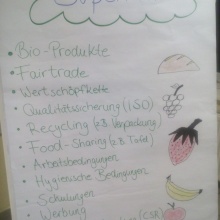 • Bio-Produkte
• Fairtrade
• Wertschöpfkette
• Qualitätssicherung (ISO)
• Recycling (zB Verpackung)
• Food-Sharing (zB Tafel)
• Arbeitsbedingungen
• Hygienische Bedingungen
• Schulungen
• Werbung
(CSR)